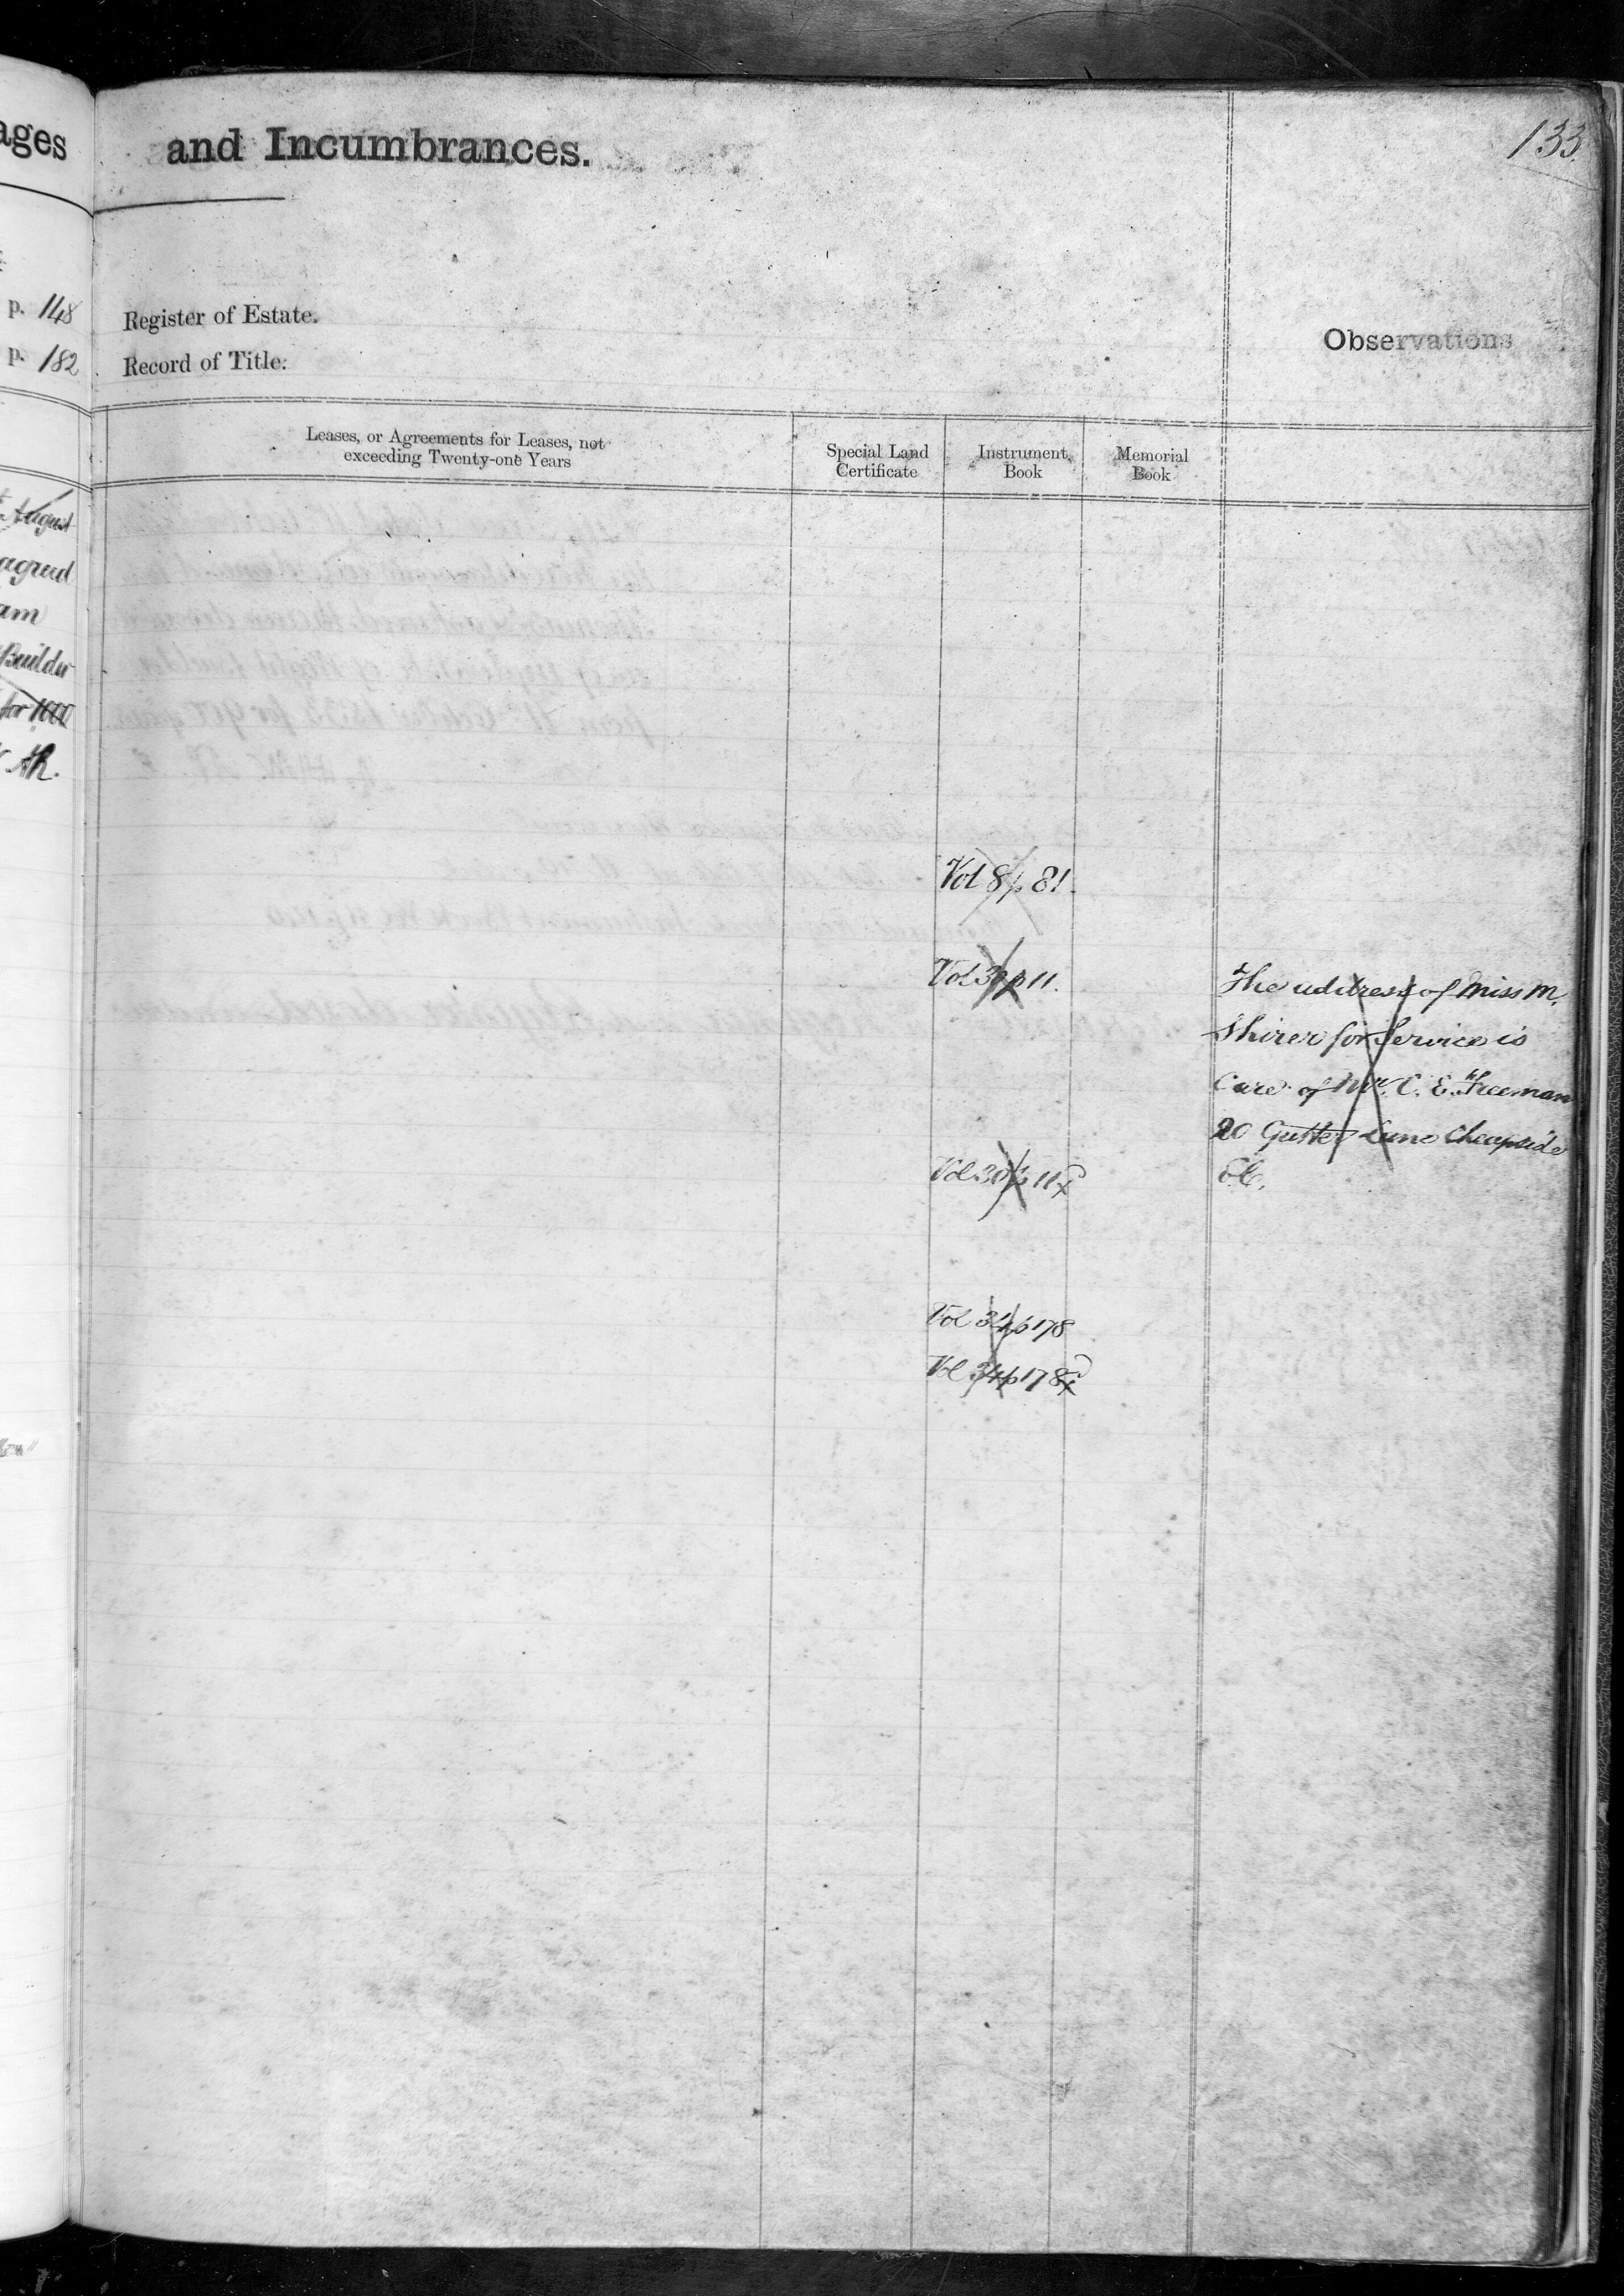 ages
p. 148
p. 182
August
agreed
am
Builder
for 1000
AR.
and Incumbrances.
133.
Register of Estate.
Record of Title.
Observations
Leases, or Agreements for Leases, not
exceeding Twenty-one Years
Special Land
Certificate
Instrument
Book
Memorial
Book
Vol 8 p 81.
Vol 30 p 11.
The address of Miss M.
Shirer for Service is
Care of Mr. C. E. Freeman
20 Gutter Lane Cheapside
E.C.
Vol 30 p 11
Vol 34 p 178
Vol 34 p 178